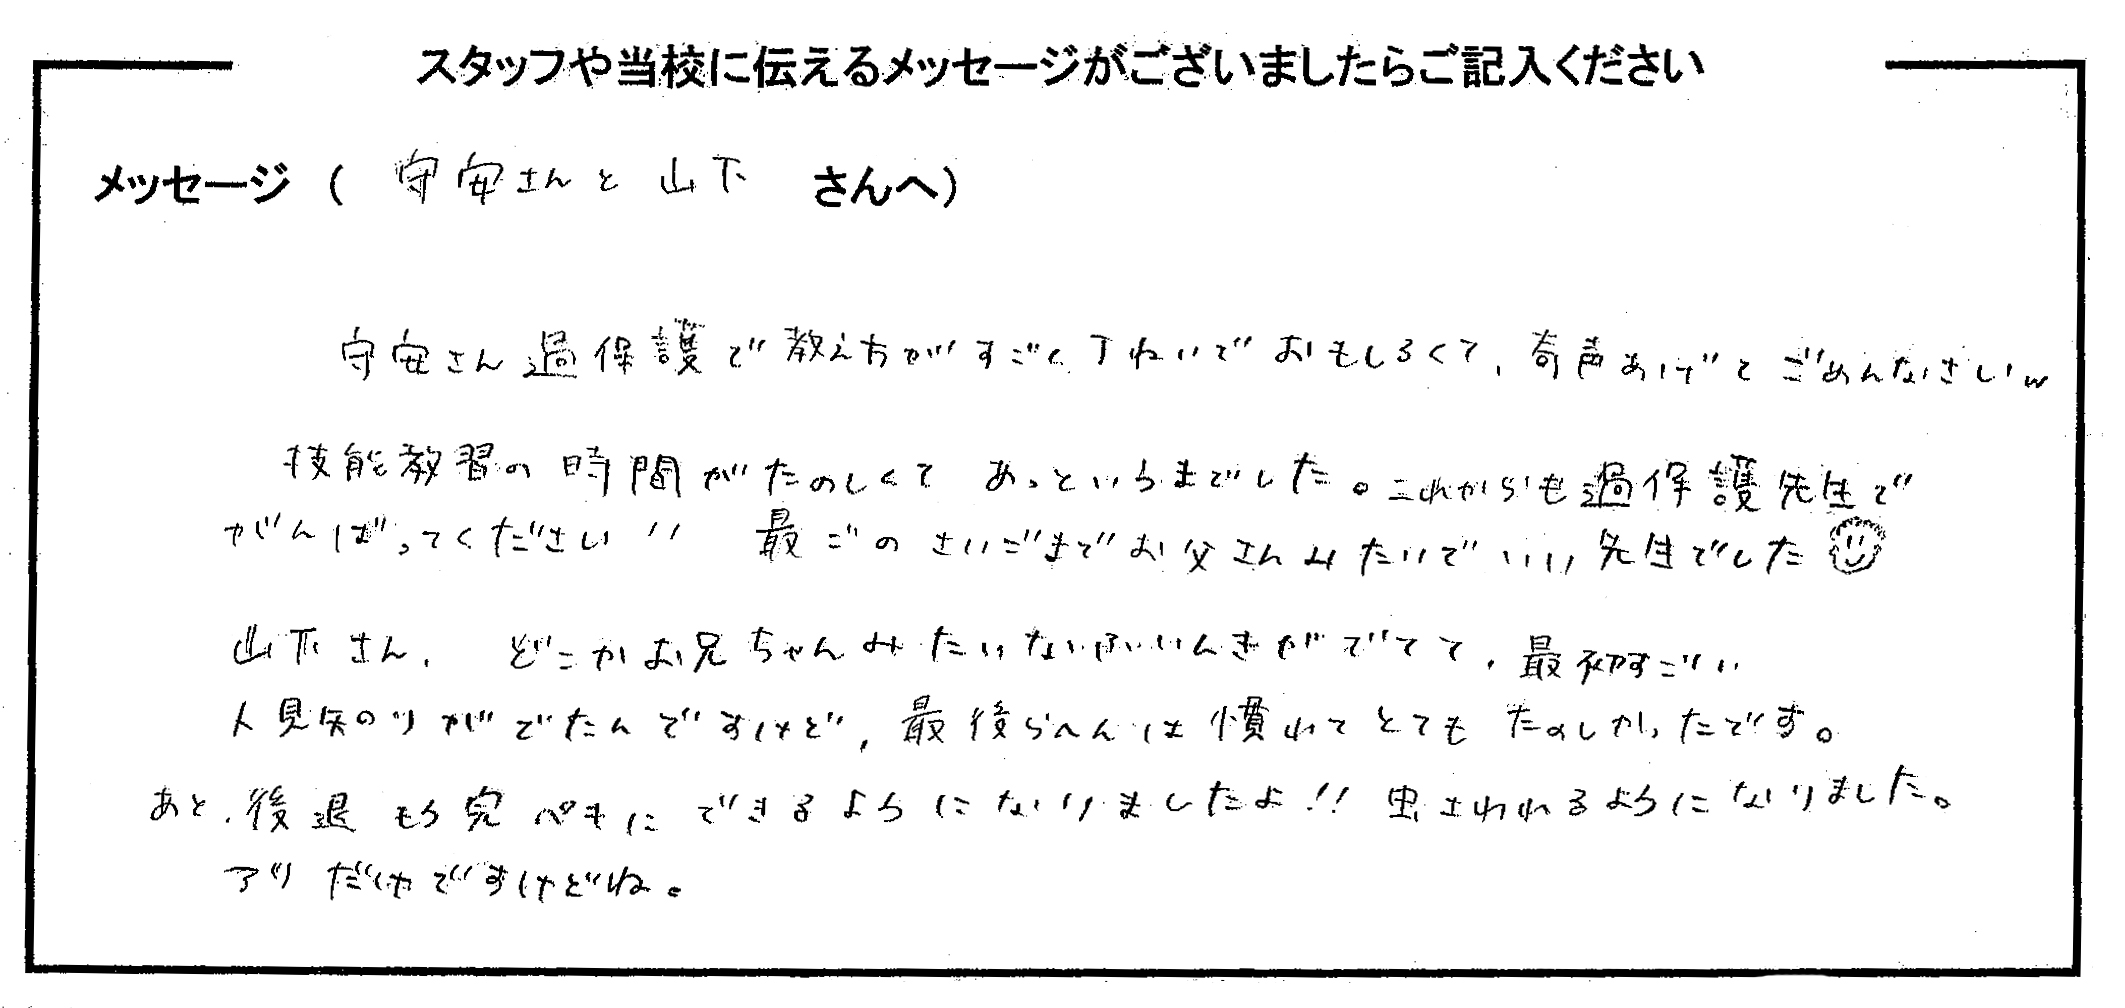 スタッフや当校に伝えるメッセージがございましたらご記入ください
メッセージ ( 守安さんと 山下 さんへ)
守安さん過保護で教え方がすごく丁ねいでおもしろくて、奇声あげてごめんなさいw
技能教習の時間がたのしくて あっというまでした。これからも過保護先生で
がんばってください!! 最ごのさいごまでお父さんみたいでいい先生でした
山下さん、 どこかお兄ちゃんみたいなふいんきがでてて、最初すごい
人見知りがでたんですけど、最後らへんは慣れてとてもたのしかったです。
あと、後退もう完ペキにできるようになりましたよ!! 虫さわれるようになりました。
アリだけですけどね。